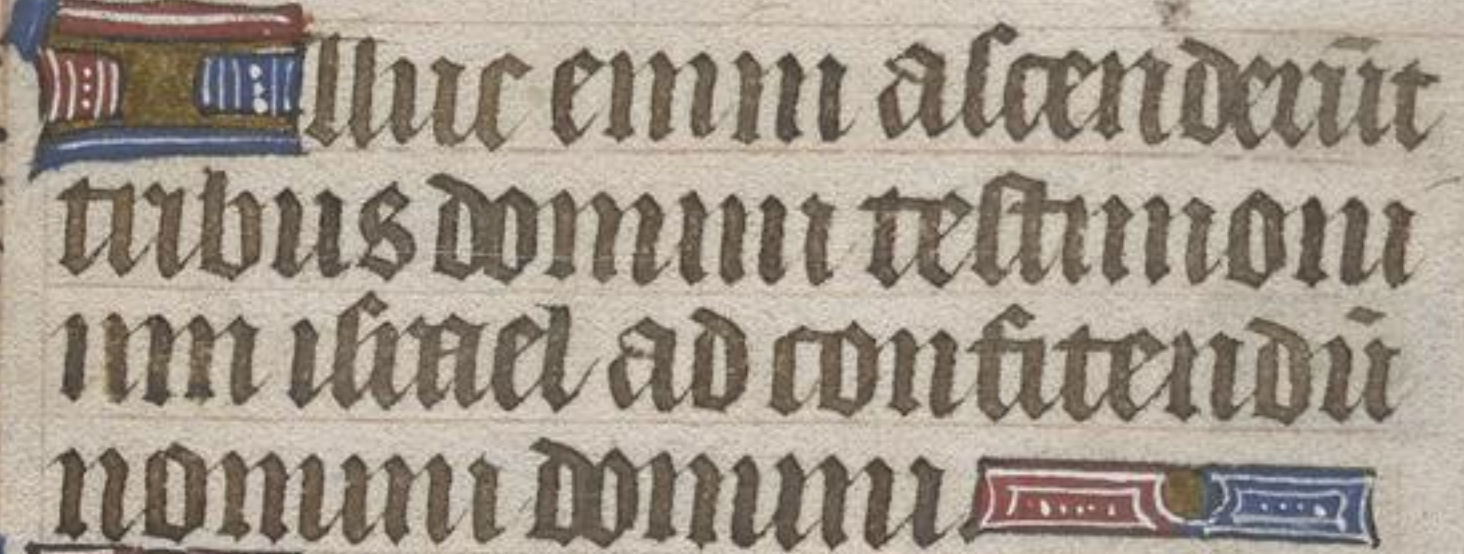 Illuc enim aſcenderūt
tribus domini teſtimoni
um iſrael ad confitendū
nomini domini.